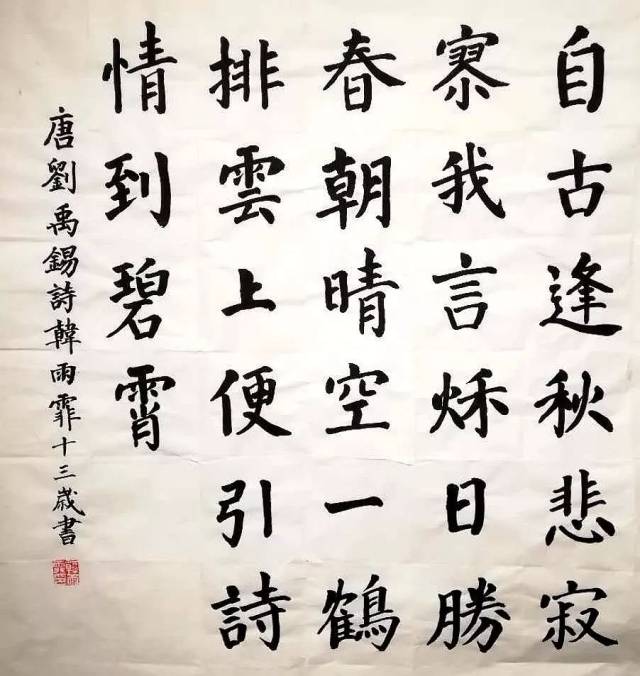 自古逢秋悲寂
寥我言秋日勝
春朝晴空一鶴
排雲上便引詩
情到碧霄
唐劉禹錫詩韓雨霏十三歲書